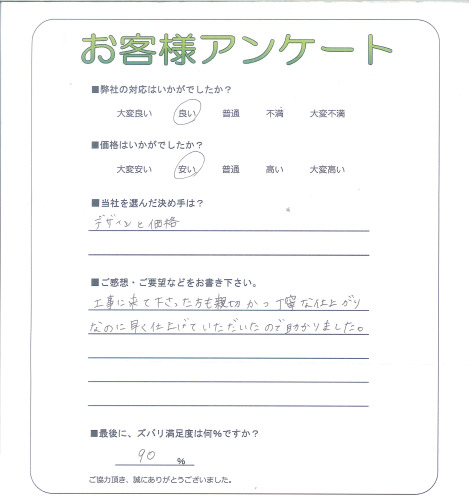 お客様アンケート
■弊社の対応はいかがでしたか？
大変良い　良い　普通　不満　大変不満
■価格はいかがでしたか？
大変安い　安い　普通　高い　大変高い
■当社を選んだ決め手は？
デザインと価格
■ご感想・ご要望などをお書き下さい。
工事に来て下さった方も親切かつ丁寧な仕上がり
なのに早く仕上げていただいたので助かりました。
■最後に、ズバリ満足度は何%ですか？
90 %
ご協力頂き、誠にありがとうございました。